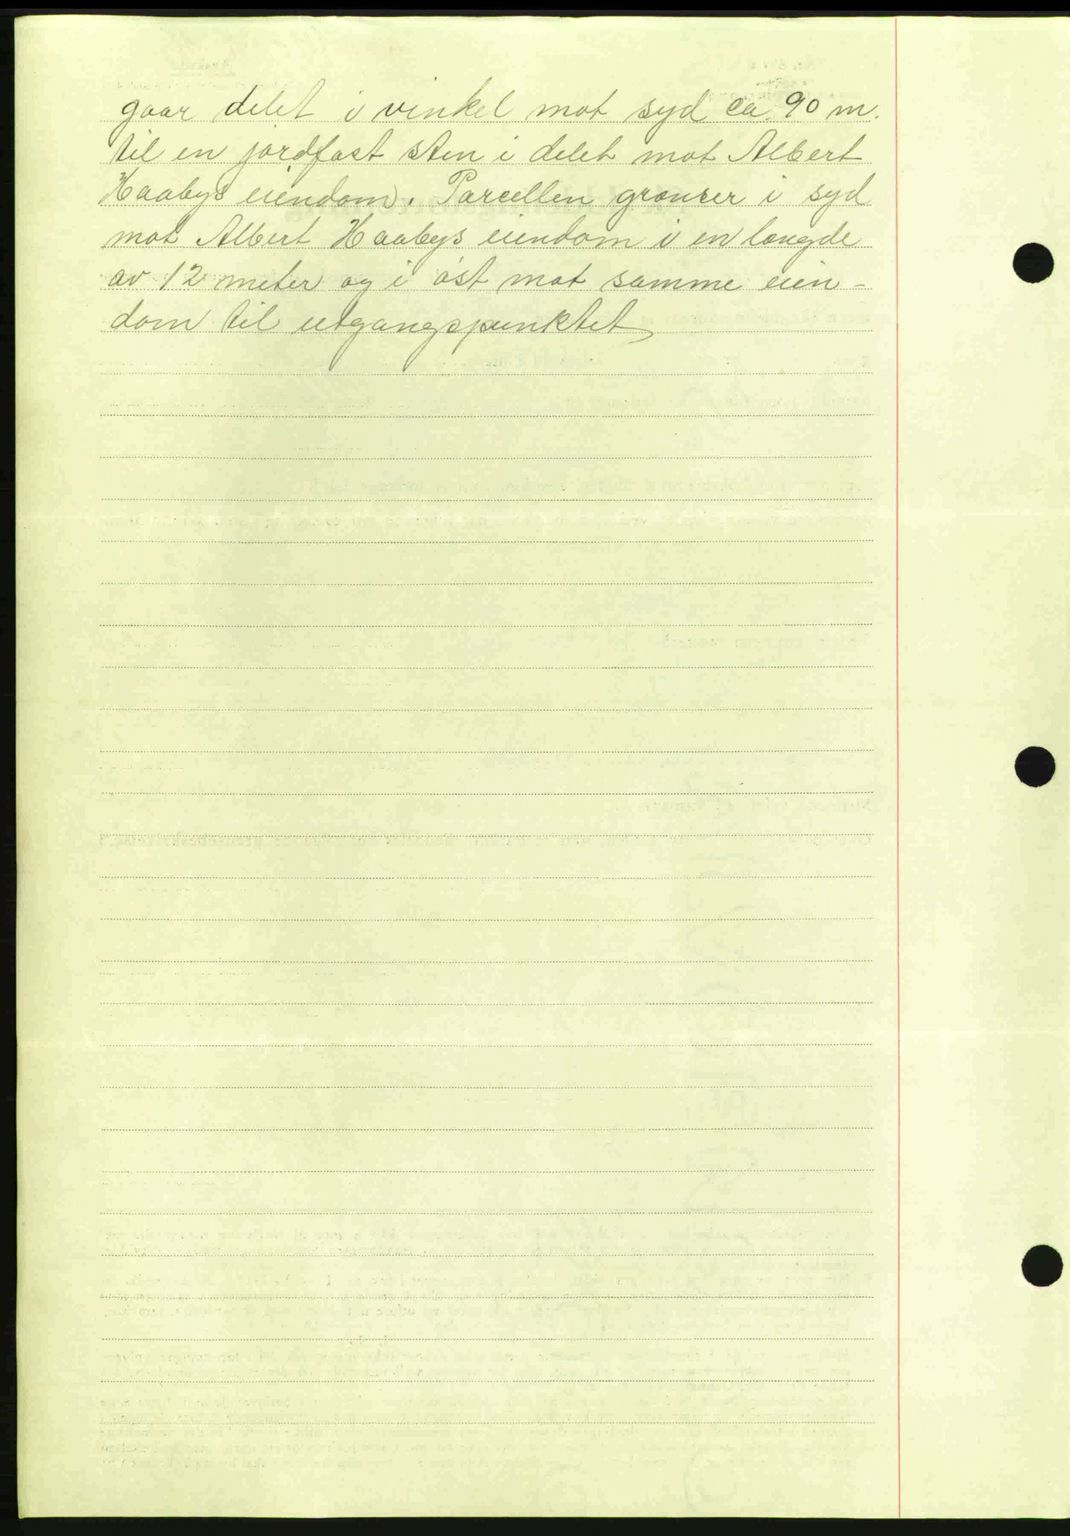 gaar delet i vinkel mot syd ca. 90 m.
til en jordfast sten i delet mot Albert
Haabys eiendom. Parcellen grænser i syd
mot Albert Haabys eiendom i en længde
av 12 meter og i øst mot samme eien-
dom til utgangspunktet